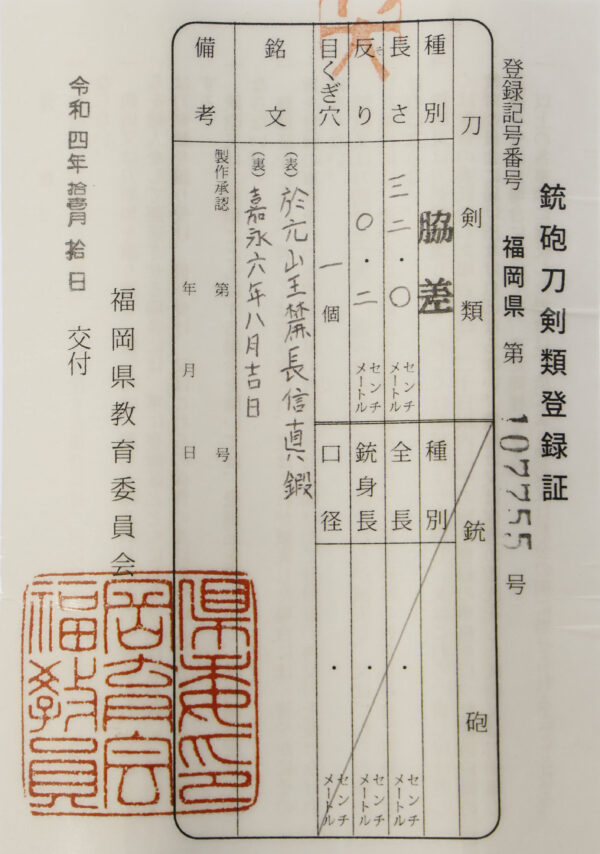 銃砲刀剣類登録証
登録記号番号 福岡県 第 107755 号
刀剣類
種別 脇差
長さ 三二・〇 センチメートル
反り 〇・二 センチメートル
目くぎ穴 一個
銘文
(表)於元山王麓長信真鍛
(裏)嘉永六年八月吉日
備考
製作承認 第 号
年 月 日
銃砲
種別
全長 ・ センチメートル
銃身長 ・ センチメートル
口径 ・ センチメートル
令和四年拾壹月拾日 交付
福岡県教育委員会
福岡県教育委員会印